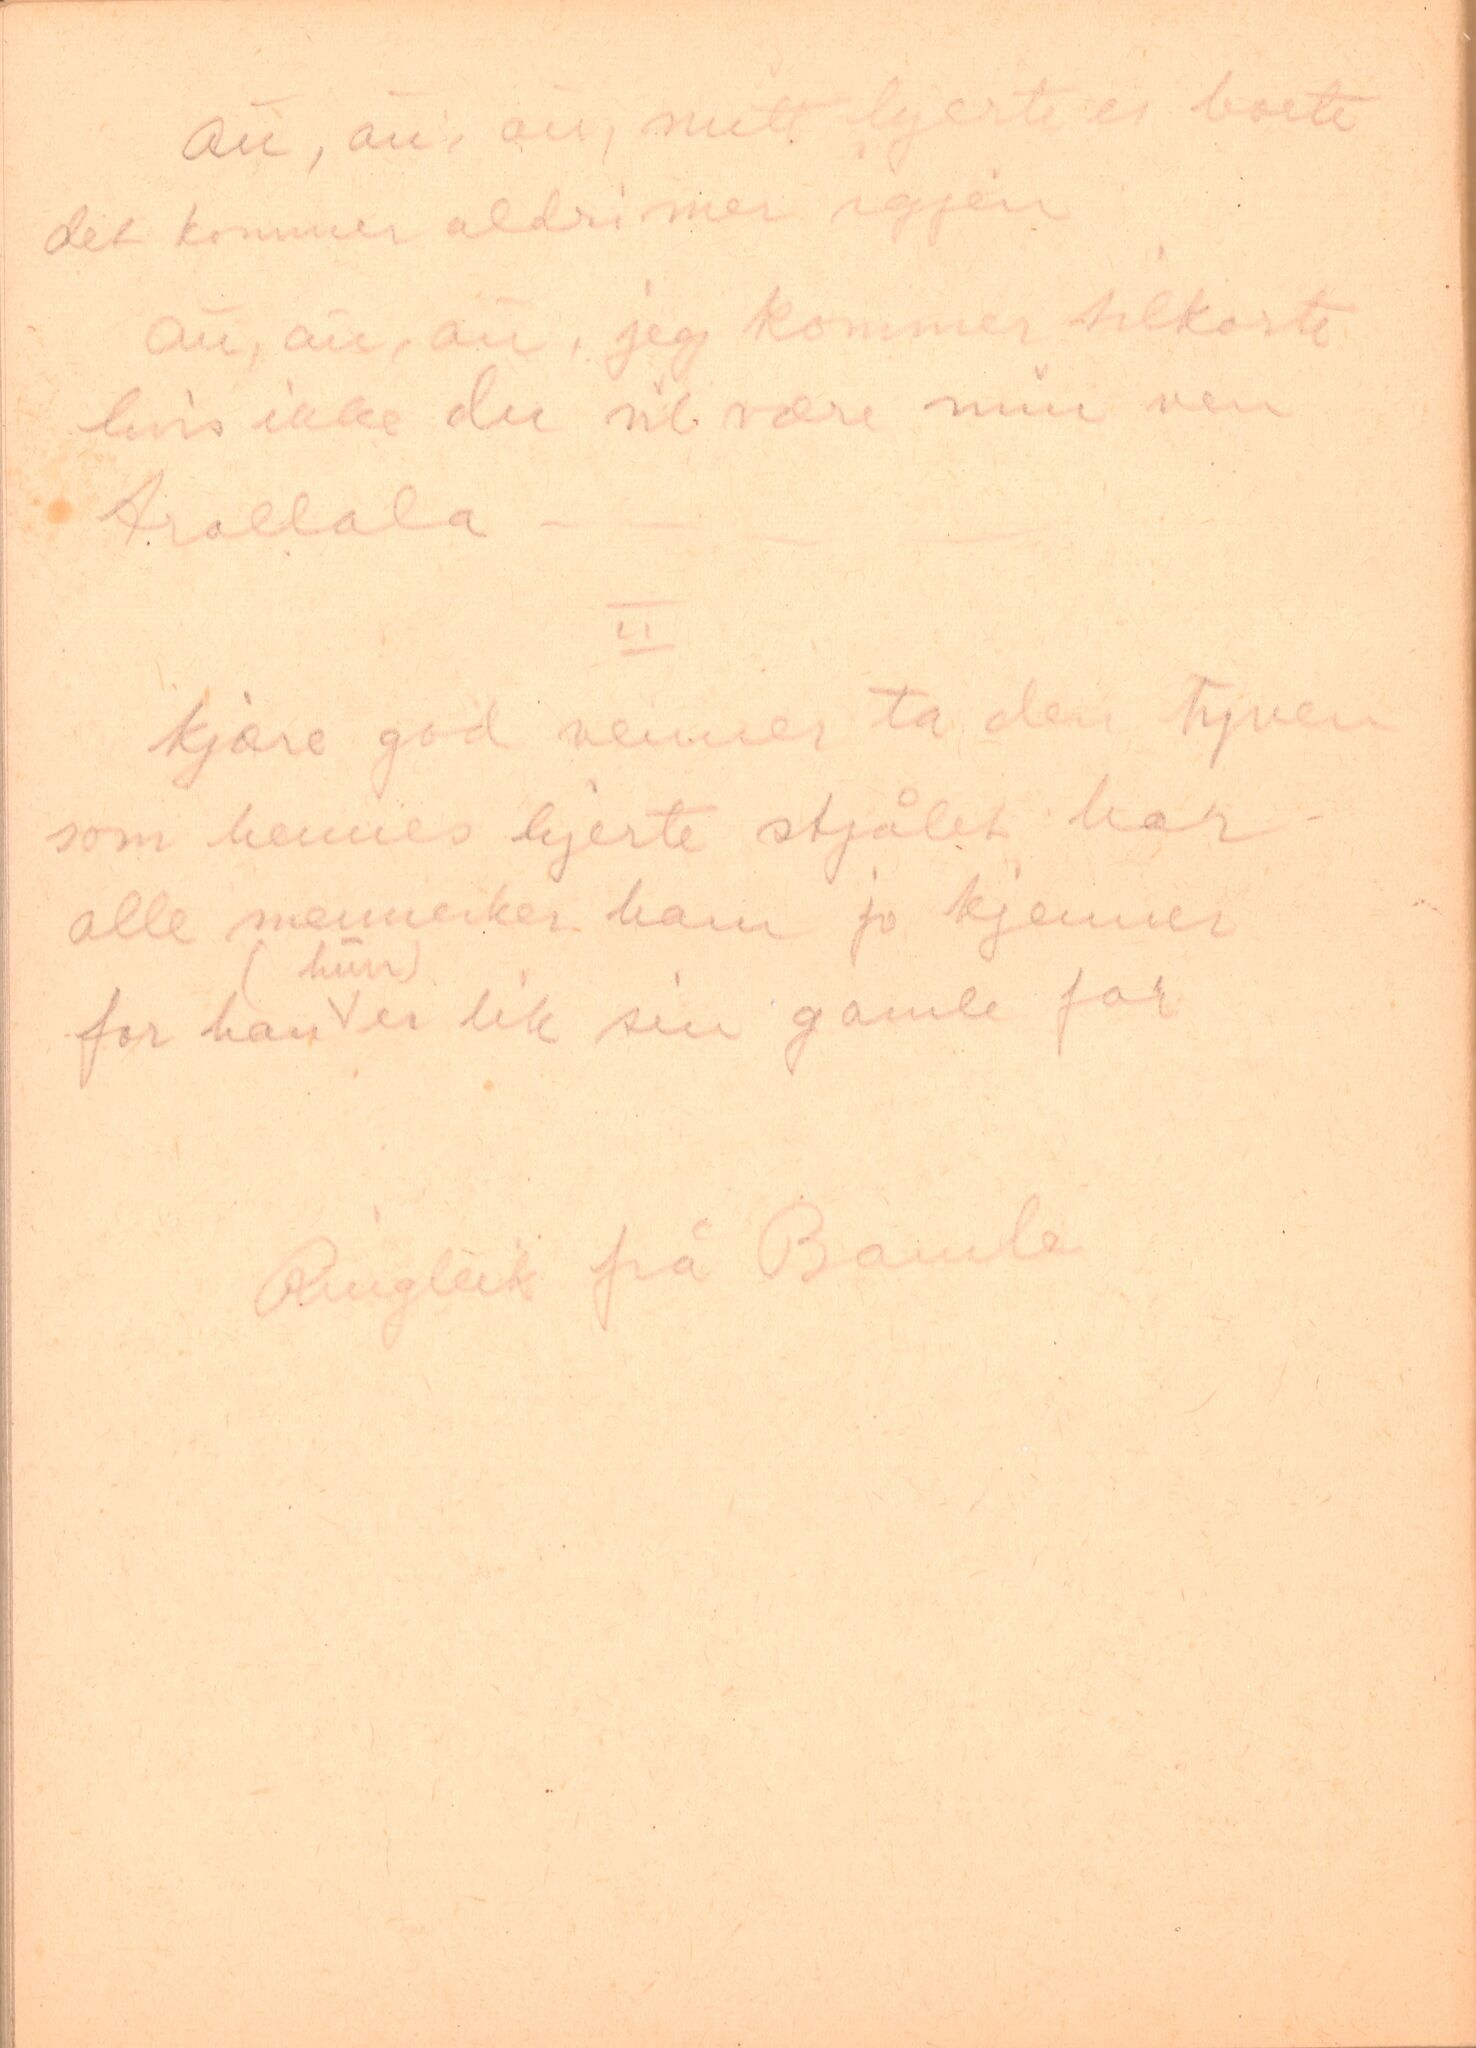 au, au, au, mitt hjerte er borte
det kommer aldri mer igjen
au, au, au, jeg kommer tilkorte
hvis ikke du vil være min ven
trallala - - - -
II
kjære god venner ta den tyven
som hennes hjerte stjålet har -
alle mennesker ham jo kjenner
(hun)
for han er lik sin gamle far
Ringleik frå Bamle